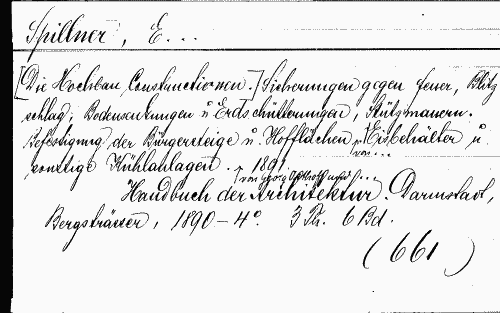 Spillner, E...
[Die Hochbau Constructionen.] Sicherungen gegen Feuer, Blitz
schlag, Bodensenkungen u Erdschütterungen, Stützmauern.
Befestigung der Bürgersteige u. Hofflächen, Eisbehälter u.
von ...
sonstige Kühlanlagen. 1891
von Georg Osthoff und ...
Handbuch der Architektur. Darmstadt,
Bergsträsser, 1890-4°. 3 Th. 6 Bd.
(661)